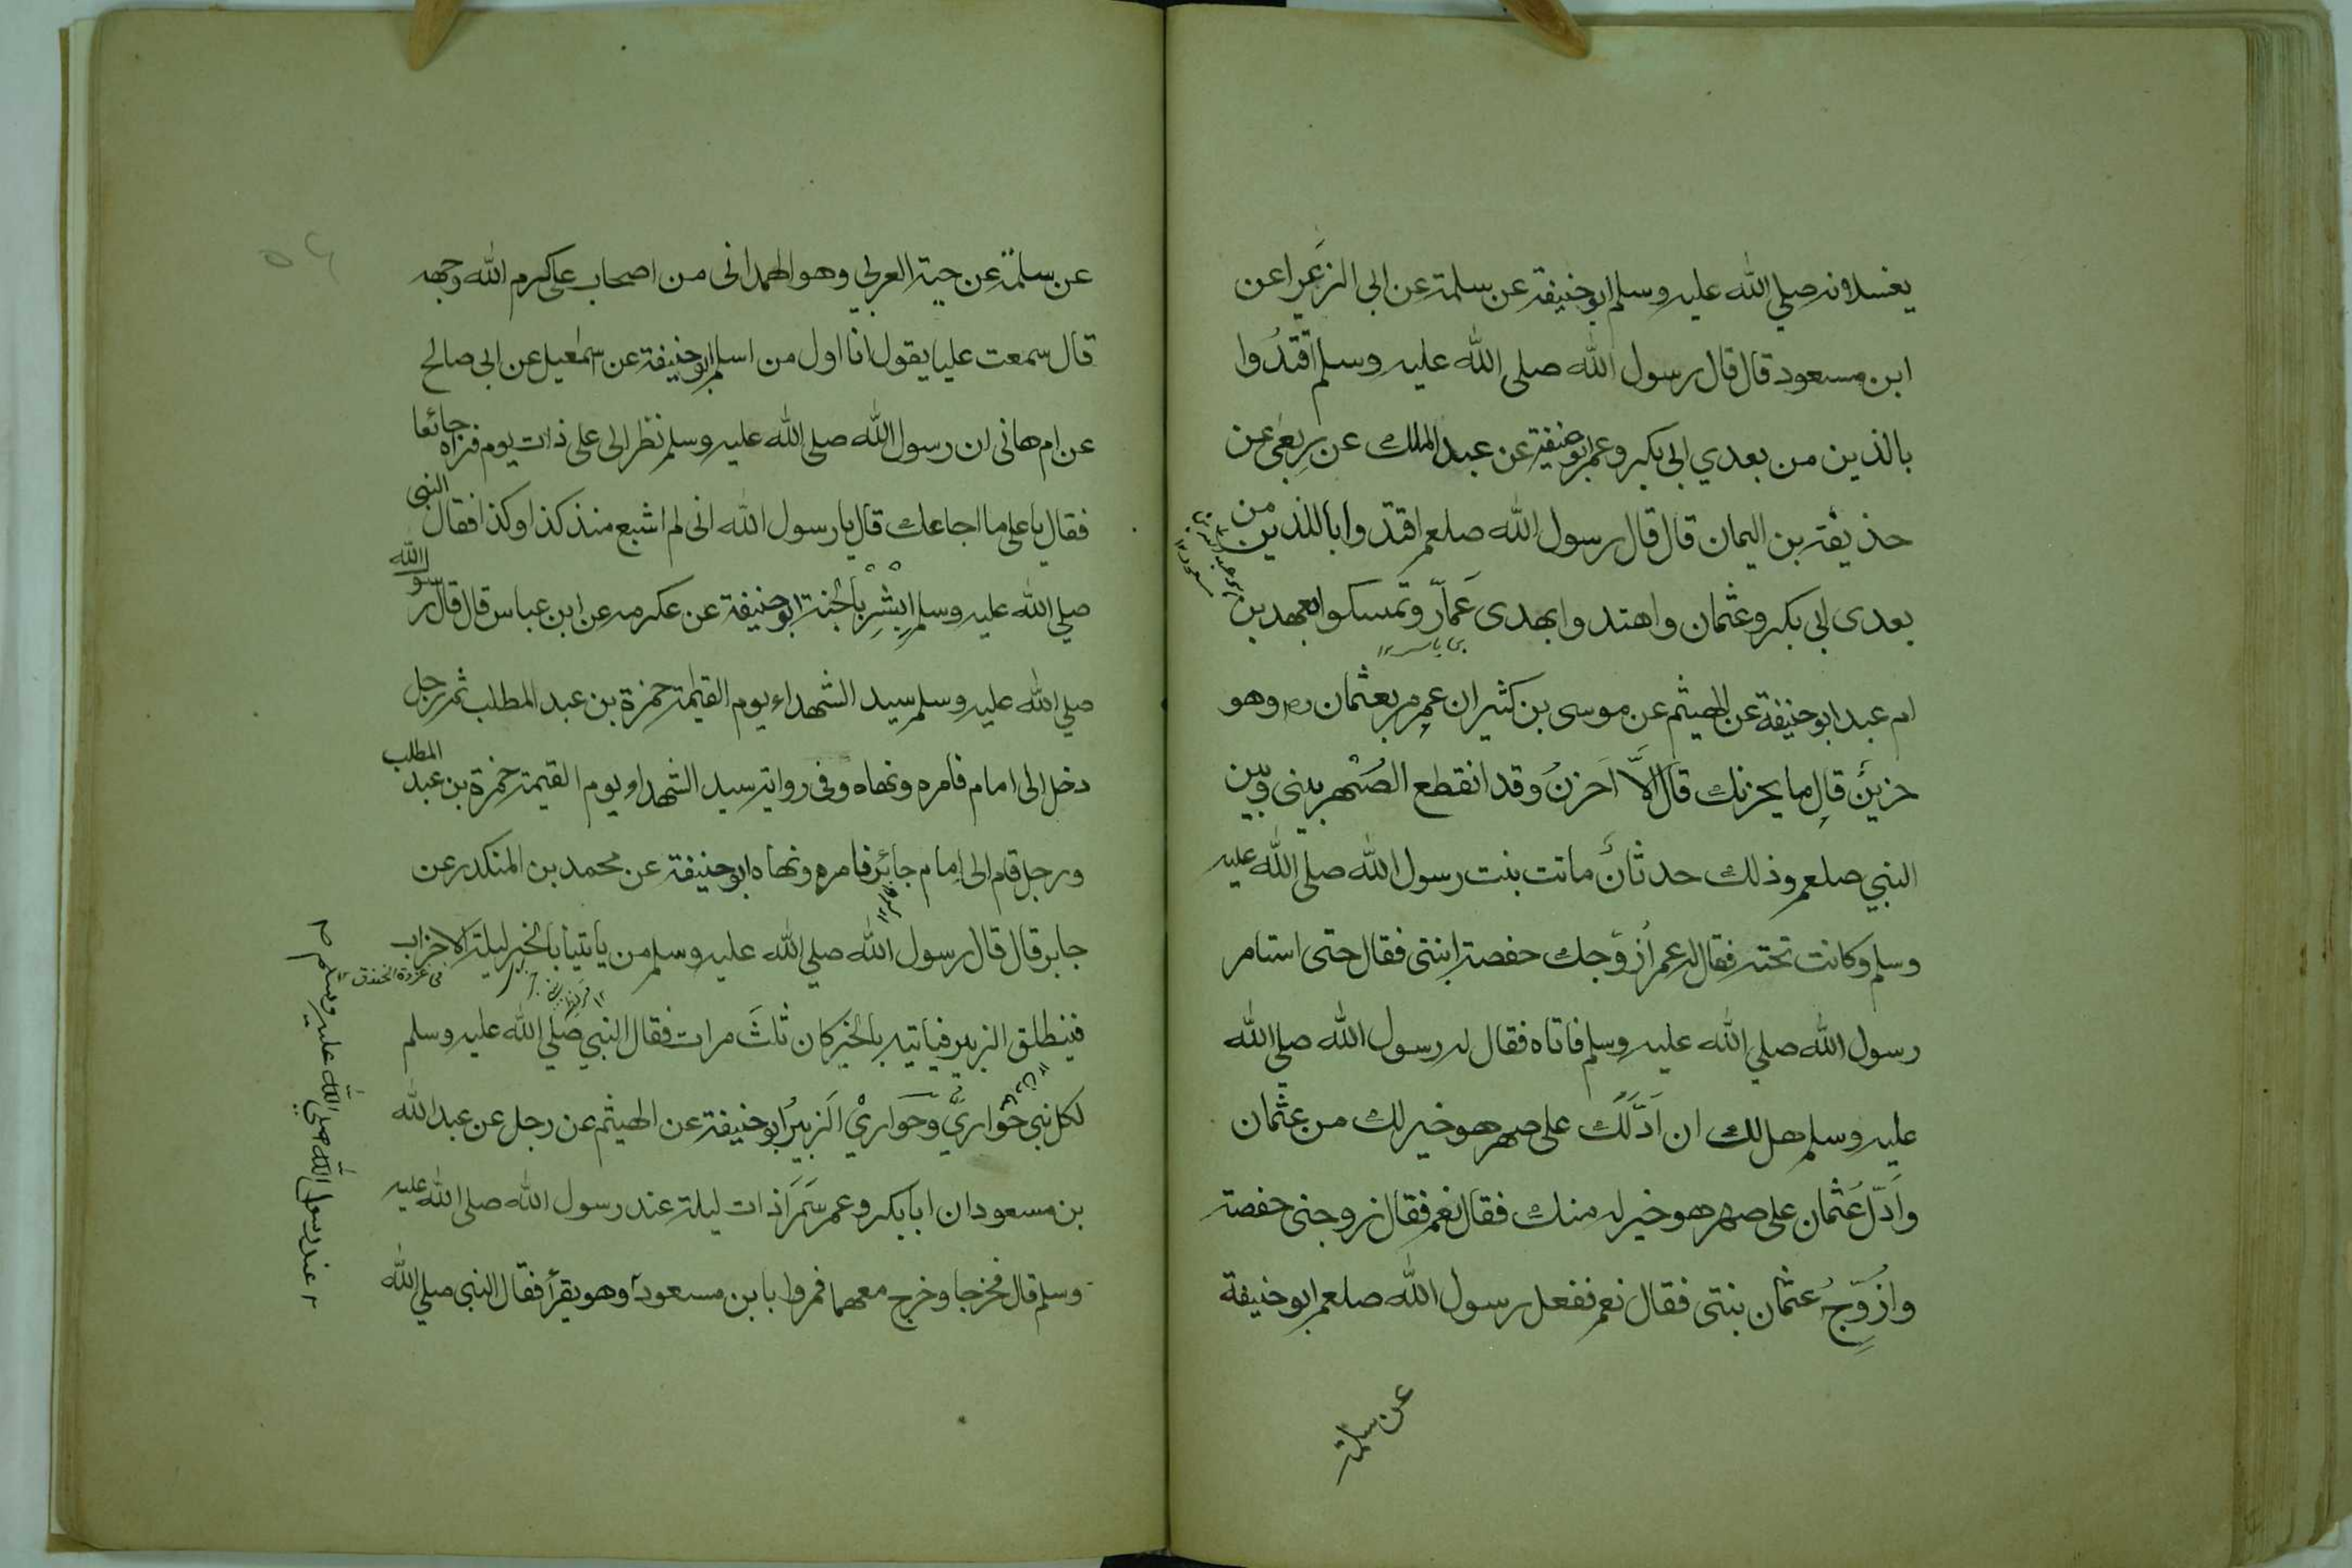 يغسلونه صلي الله عليه وسلم ابو حنيفة عن سلمة عن ابي الزعرا عن
ابن مسعود قال قال رسول الله صلى الله عليه وسلم اقتدُوا
بالذين من بعدي ابي بكر وعمر ابو حنيفة عن عبد الملك عن ربعي عن
حذيفة بن اليمان قال قال رسول الله صلعم اقتدوا باللذين من
بعدى ابى بكر وعثمان واهتدوا بهدى عَمّار وتمسكوا بعهد بن
بن ياسر ١٢
ام عبد ابو حنيفة عن الهيثم عن موسى بن كثير ان عمر مر بعثمان رض وهو
حزين قال ما يحزنك قال الَّا اَحزنُ وقد انقطع الصُهْر بينى وبين
النبي صلعم وذلك حدثان ماتت بنت رسول الله صلى الله عليه
وسلم وكانت تحته فقال له عمر اُزوّجك حفصة ابنتى فقال حتى استامر
رسول الله صلي الله عليه وسلم فاتاه فقال له رسول الله صلي الله
عليه وسلم هل لك ان اَدَّلَكَ على صهر هو خير لك من عثمان
وَاَدّلُ عَثمان على صهر هو خير له منك فقال نعم فقال زوجنى حفصة
وازوّجُ عثمان بنتى فقال نعم ففعل رسول الله صلعم ابو حنيفة
عن سلمة
عن سلمة عن حية العربي وهو الهمدانى من اصحاب على كرم الله وجهه
قال سمعت عليا يقول انا اول من اسلم ابو حنيفة عن اسمعيل عن ابى صالح
عن ام هانى ان رسول الله صلى الله عليه وسلم نظر الى على ذات يوم فراه جائعا
فقال يا على ما اجاعك قال يا رسول الله انى لم اشبع منذ كذا وكذا فقال النبى
صلي الله عليه وسلم ابْشْرِ بالجنة ابو حنيفة عن عكرمه عن ابن عباس قال قال رسو الله
صلي الله عليه وسلم سيد الشهداء يوم القيمة حمزة بن عبد المطلب ثم رجل
دخل الى امام فامره ونهاه وفى رواية سيد الشهداء يوم القيمة حمزة بن عبد المطلب
ورجل قام الى امام جائر فامره ونهاه ابو حنيفة عن محمد بن المنكدر عن
جابر قال قال رسول الله صلي الله عليه وسلم من ياتينا بالخبر ليلة الاحزاب
فى غزوة الخندق ١٢
فينطلق الزبير فياتيه بالخبر كان ثلثَ مرات فقال النبي صلي الله عليه وسلم
لكل نبي حَواريٌّ وحَواريْ الزبيرُ ابو حنيفة عن الهيثم عن رجل عن عبد الله
بن مسعود ان ابا بكر وعمر سَمَرَا ذات ليلة عند رسول الله صلى الله عليه
وسلم قال فخرجا وخرج معهما فمروا بابن مسعود وهو يقرأ فقال النبى صلي الله
عند رسول الله صلي الله عليه وسلم